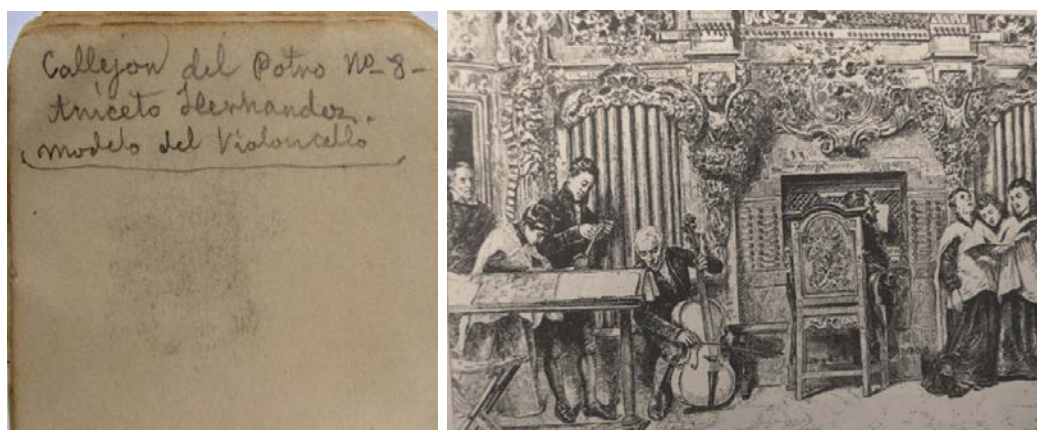 Callejon del Potro Nº 8-
Aniceto Hernandez.
modelo del Violoncello